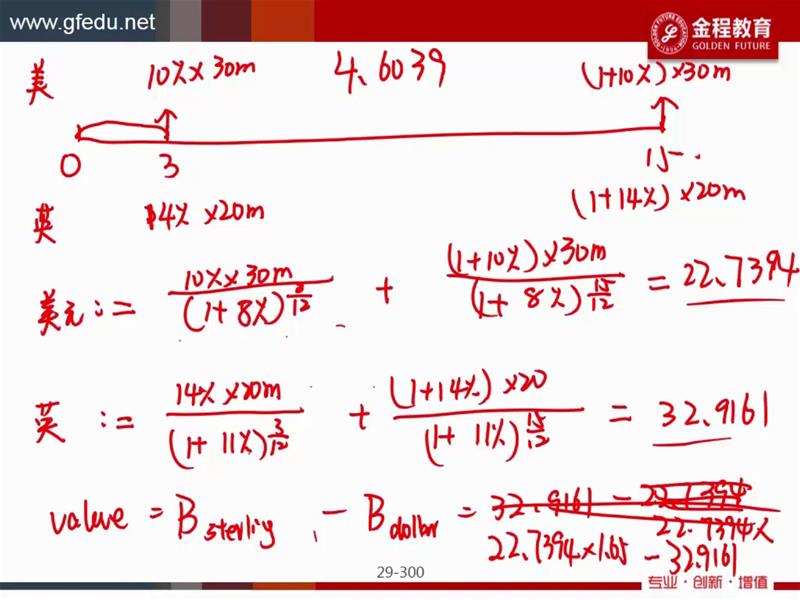 www.gfedu.net
金程教育
GOLDEN FUTURE
美 10%×30m 4.6039 (1+10%)×30m
0 3 15
英 14%×20m (1+14%)×20m
美元:= 10%×30m / (1+8%)^3/12 + (1+10%)×30m / (1+8%)^15/12 = 22.7394
英:= 14%×20m / (1+11%)^3/12 + (1+14%)×20 / (1+11%)^15/12 = 32.9161
value = B sterling - B dollar = 32.9161 - 22.7394
22.7394×
22.7394×1.65 - 32.9161
29-300
专业·创新·增值